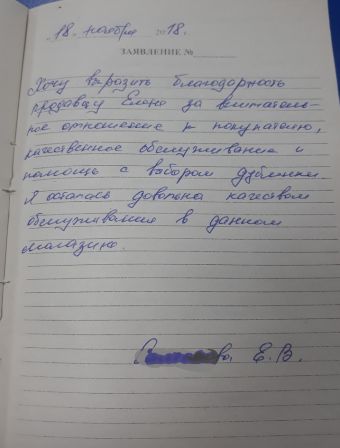 „18" ноября 2018.
ЗАЯВЛЕНИЕ №
Хочу выразить благодарность
продавцу Елене за вниматель-
ное отношение к покупателю,
качественное обслуживание и
помощь с выбором дубленки.
Я осталась довольна качеством
обслуживания в данном
магазине.
ва Е.В.